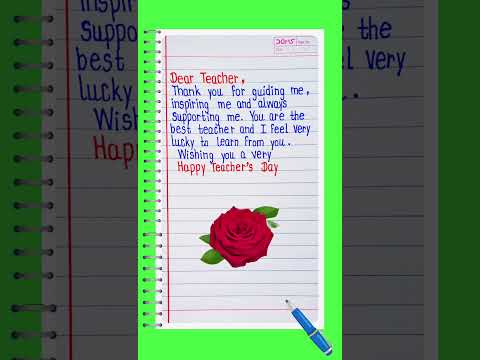 DOMS
Dear Teacher,
Thank you for guiding me,
inspiring me and always
supporting me. You are the
best teacher and I feel very
lucky to learn from you.
Wishing you a very
Happy Teacher's Day